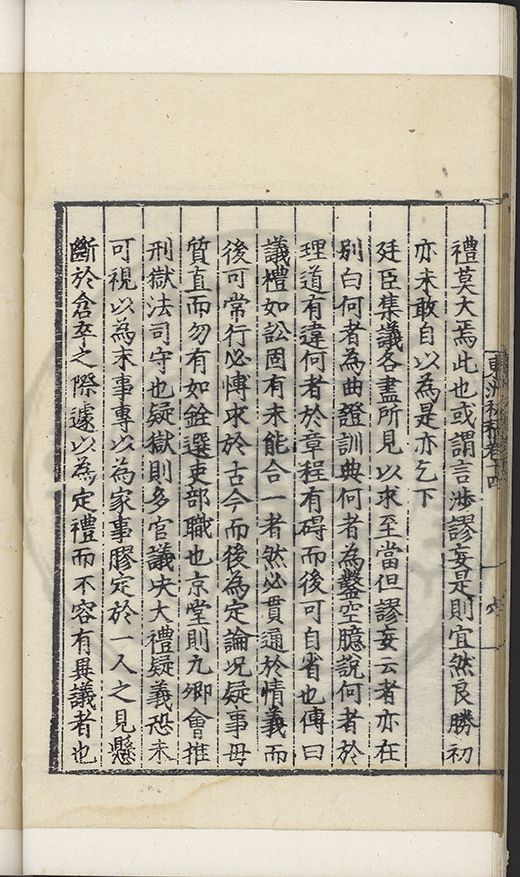 東洲初稿卷十四
禮莫大焉此也或謂言渉謬妄是則宜然良勝初
亦未敢自以為是亦乞下
廷臣集議各盡所見以求至當但謬妄云者亦在
别白何者為曲證訓典何者為鑿空臆說何者於
理道有違何者於章程有碍而後可自省也傳曰
議禮如訟固有未能合一者然必貫通於情義而
後可常行必愽求於古今而後為定論况疑事毋
質直而勿有如銓選吏部職也京堂則九卿會推
刑獄法司守也疑獄則多官議决大禮疑義恐未
可視以為末事專以為家事膠定於一人之見懸
斷於倉卒之際遽以為定禮而不容有異議者也